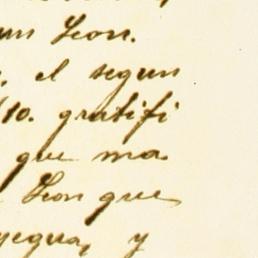 un Leon.
el segun
10. gratifi
que ma
Leon que
yegua, y